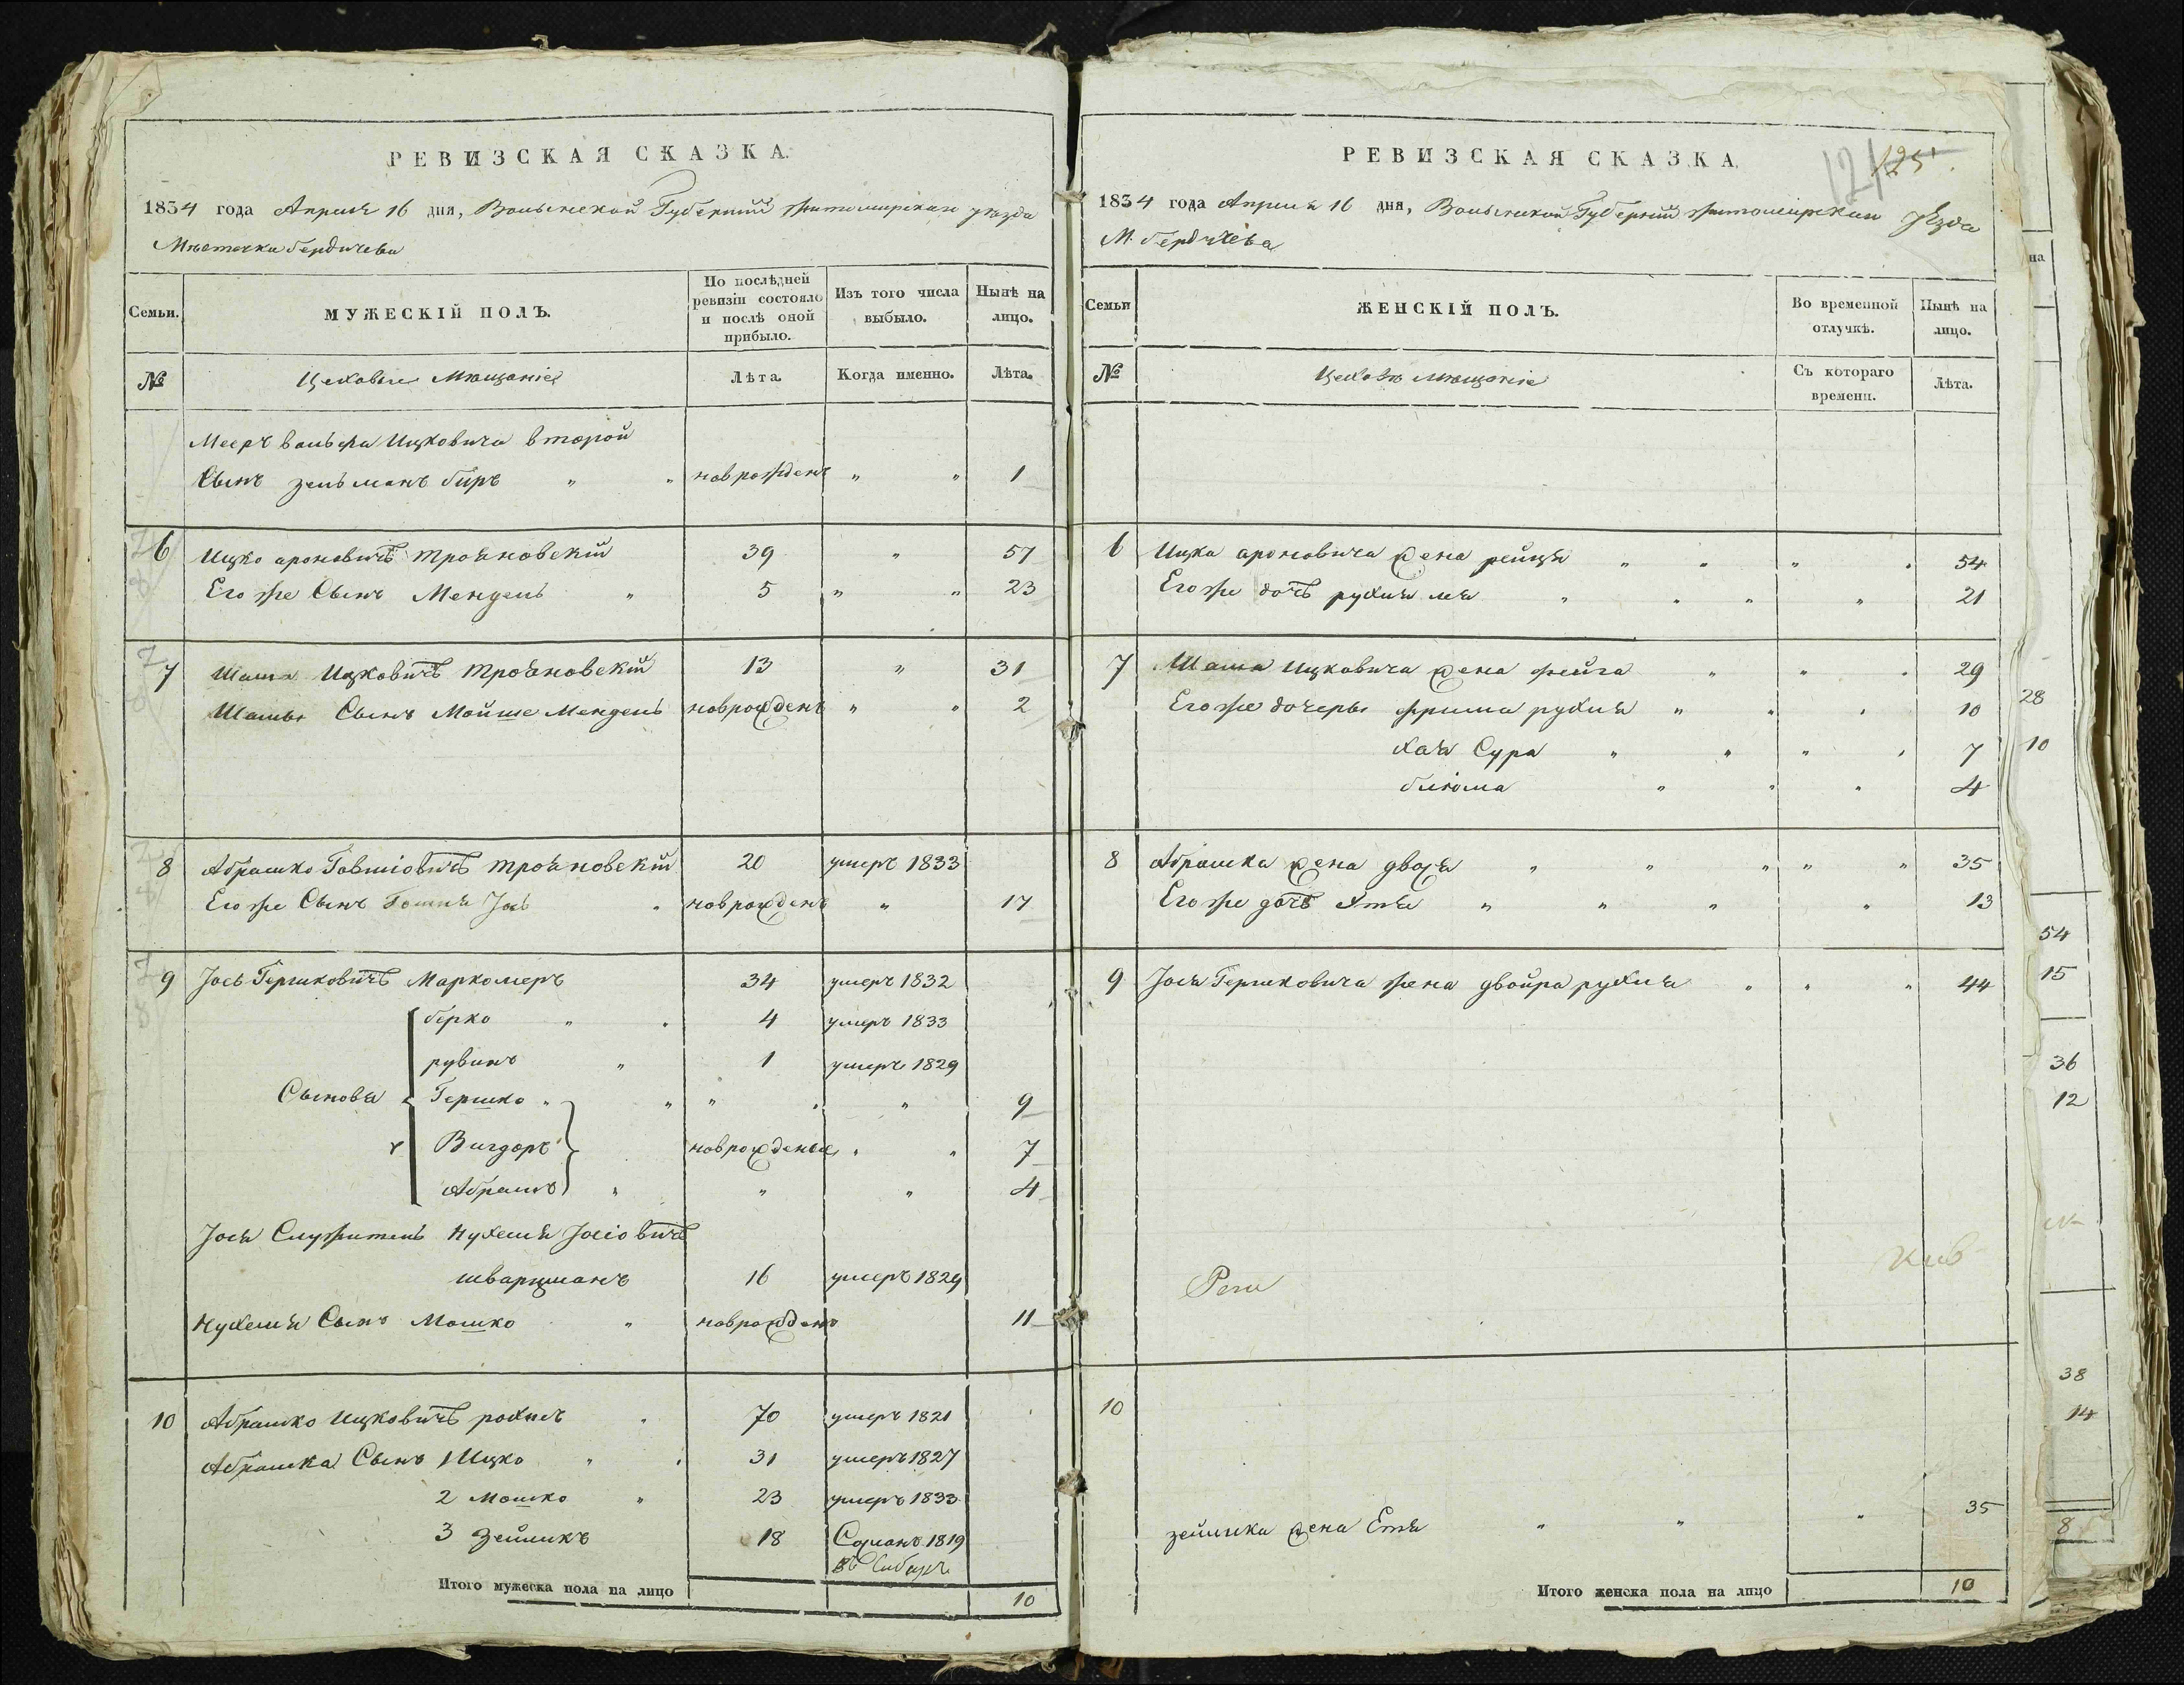 РЕВИЗСКАЯ СКАЗКА.
1834 года Апреля 16 дня, Волынской Губерніи житомирскаго уезда
Мѣстечка бердичева
Семьи.
МУЖЕСКІЙ ПОЛЪ.
По послѣдней ревизіи состояло и послѣ оной прибыло.
Изъ того числа выбыло.
Нынѣ на лицо.
№
Цеховые Мещаніе
Лѣта.
Когда именно.
Лѣта.
Мееръ вольфа Ицковича второй
Сынъ зельманъ биръ " " новрожденъ " " 1
6 Ицко ароновичъ трояновскій 39 " 57
Его же Сынъ Мендель " 5 " " 23
7 Шама Ицковичъ трояновскій 13 " 31
Шамы Сынъ Мойше Мендель новрожденъ " " 2
8 Абрамко Говшіовичъ трояновскій 20 умеръ 1833
Его же Сынъ Іось новрожденъ " 17
9 Іось Гершковичъ Маркомеръ 34 умеръ 1832
берко " " 4 умеръ 1833
рувинъ " 1 умеръ 1829
Сыновя Гершко " " " " 9
Вигдоръ новрожденые " " 7
Абрамъ " " " 4
Іося Служитель Нухемя Іосіовичъ
шварцманъ 16 умеръ 1829
Нухемя Сынъ Мошко " новрожденъ 11
10 Абрамко Ицковичъ рохисъ " 70 умеръ 1821
Абрамка Сынъ 1 Ицко " " 31 умеръ 1827
2 Мошко " 23 умеръ 1833
3 Зейликъ 18 Сосланъ 1819
въ Сибирь
Итого мужеска пола на лицо 10
РЕВИЗСКАЯ СКАЗКА.
121 125
1834 года Апреля 16 дня, Волынской Губерніи житомирскаго уезда
М. бердичева
Семьи
ЖЕНСКІЙ ПОЛЪ.
Во временной отлучкѣ.
Нынѣ на лицо.
№
Цеховые Мещаніе
Съ котораго времени.
Лѣта.
6 Ицка ароновича жена рейця " " " " 54
Его же дочъ рухля лея " " " " 21
7 Шама Ицковича жена фейга " " " 29
Его же дочеры фрима рухля " " " 10
хая Сура " " " " 7
блюма " " " 4
8 Абрамка жена двося " " " " " 35
Его же дочъ Хтя " " " " 13
9 Іося Гершковича жена двойра рухля " " " 44
10
зейлика жена Етя " " " 35
Итого женска пола на лицо 10
на
28
10
54
15
36
12
38
14
8